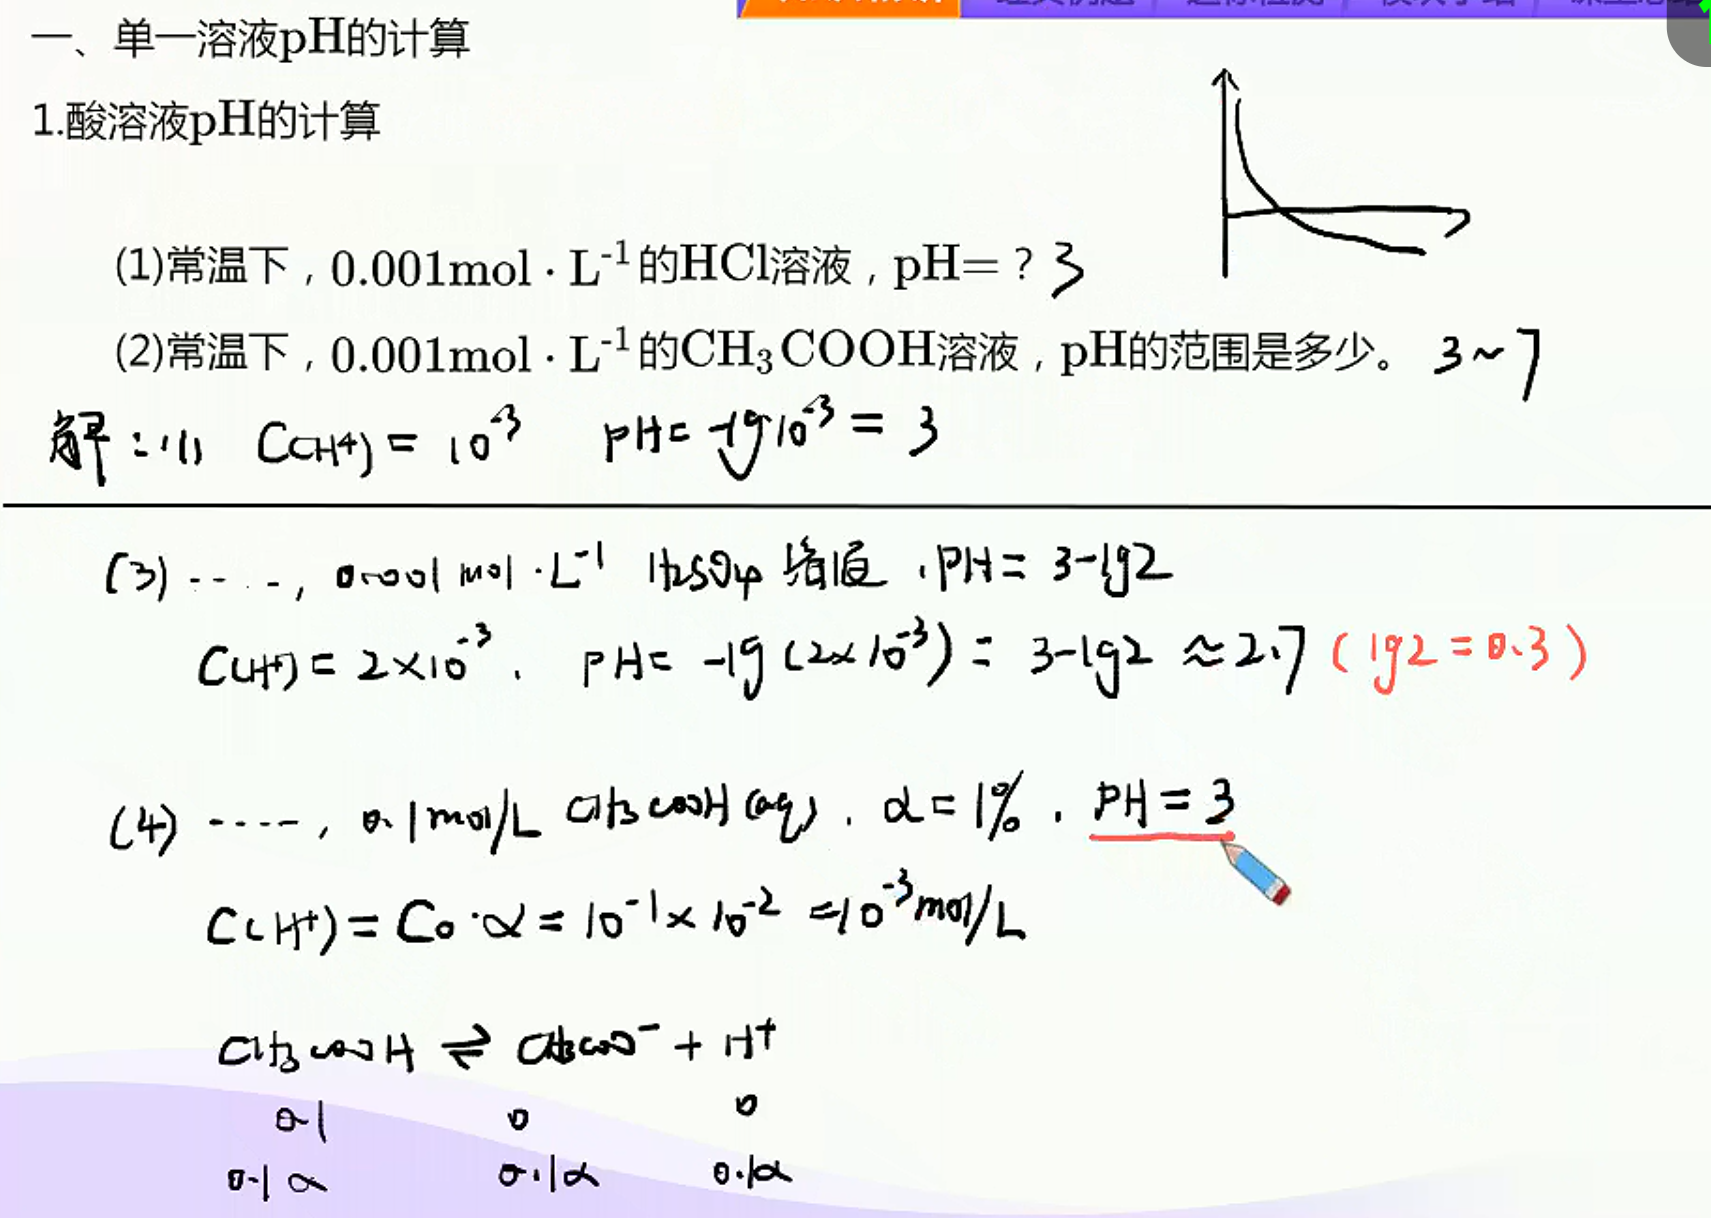 一、单一溶液pH的计算
1.酸溶液pH的计算
(1)常温下，0.001mol·L⁻¹的HCl溶液，pH=？3
(2)常温下，0.001mol·L⁻¹的CH₃COOH溶液，pH的范围是多少。 3~7
解：(1) C(H⁺) = 10⁻³ pH = -lg10⁻³ = 3
(3) ----, 0.001 mol·L⁻¹ H₂SO₄ 溶液，PH = 3-lg2
C(H⁺) = 2×10⁻³. PH = -lg(2×10⁻³) = 3-lg2 ≈ 2.7 (lg2 = 0.3)
(4) ----, 0.1mol/L CH₃COOH(aq). α = 1%. PH = 3
C(H⁺) = C₀·α = 10⁻¹ × 10⁻² = 10⁻³ mol/L
CH₃COOH ⇌ CH₃COO⁻ + H⁺
0.1 0 0
0.1α 0.1α 0.1α